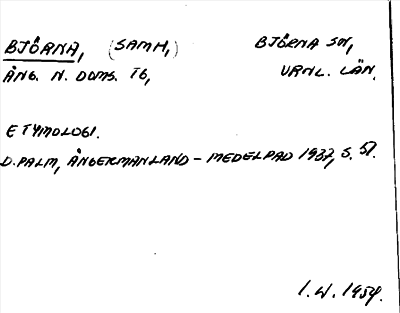 BJÖRNA, (SAMH,) BJÖRNA SN,
ÅNG. N. DOMS. TG, VRNL. LÄN.
ETYMOLOGI.
D. PALM, ÅNGERMANLAND - MEDELPAD 1937, S. 51.
I. W. 1954.